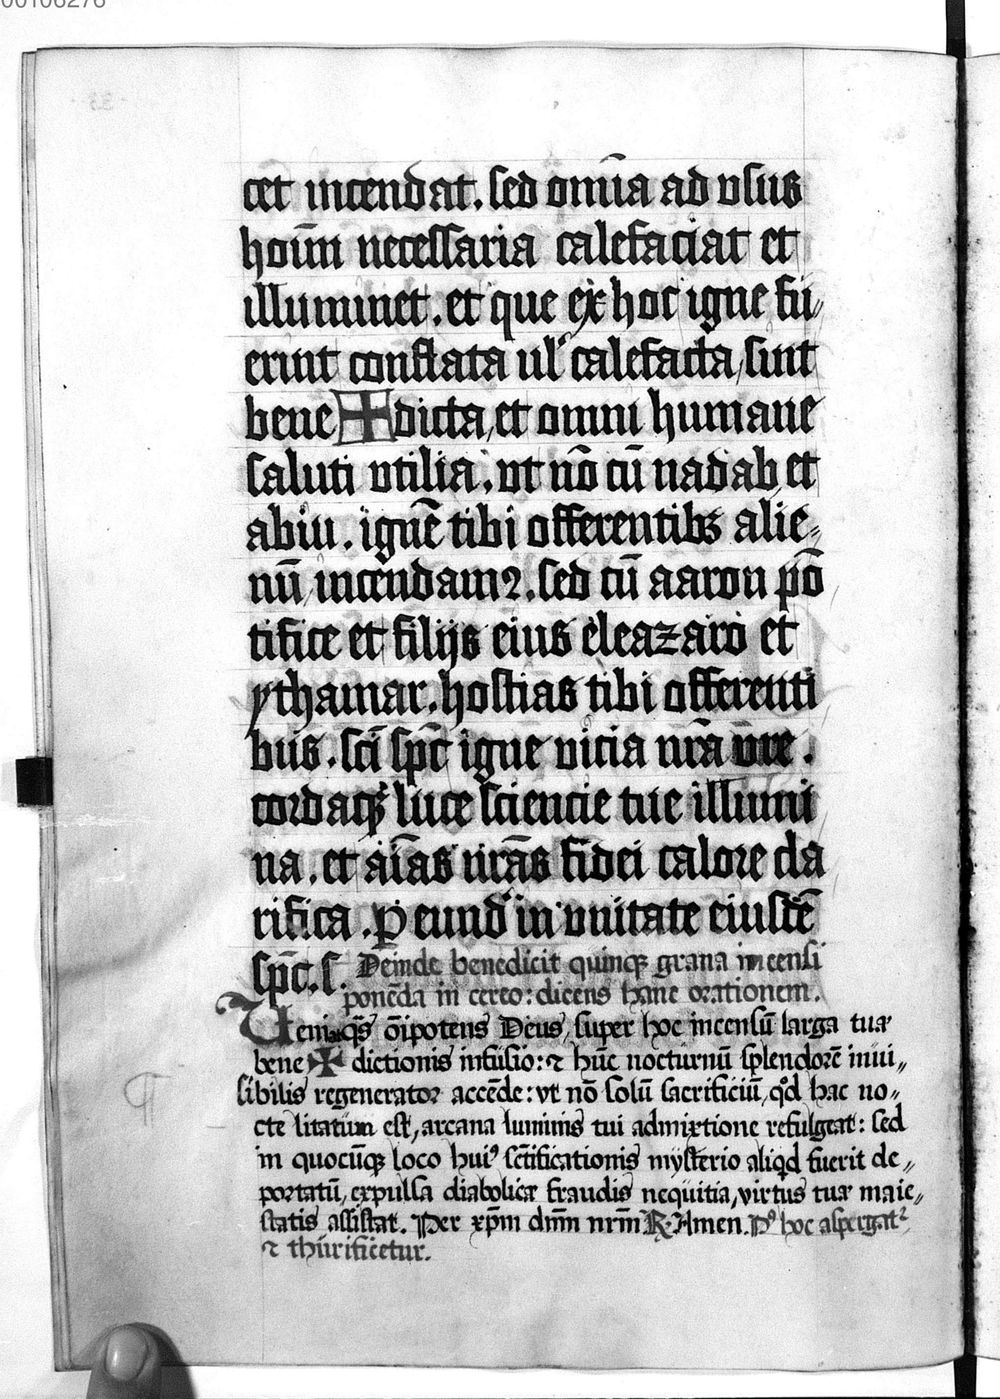 00106276
cet incendat. sed om̄ia ad vsus
hoīm necessaria calefaciat et
illuminet. et que ex hoc igne fu„
erint conflata ul' calefacta, sint
bene ✠ dicta, et omni humane
saluti vtilia. vt nō cū nadab et
abiu. ignē tibi offerentibꝫ alie„
nū incendamꝰ. sed cū aaron pō
tifice et filijs eius eleazaro et
ythamar. hostias tibi offerenti
bus. sc̄i sp̄c igne vicia nr̄a vre.
cordaqꝫ luce sciencie tue illumi
na. et aīas nr̄as fidei calore cla
rifica. P̱ eund' in vnitate eiusdē
sp̄c. s. Deinde benedicit quinqꝫ grana incensi
ponēda in cereo: dicens hanc orationem.
Veniat q̄s ōipotens Deus, super hoc incensū larga tua
bene ✠ dictionis infusio: ⁊ hūc nocturnū splendorē inui„
sibilis regenerator accēde: vt nō solū sacrificiū, qd hac no„
cte litatum est, arcana luminis tui admixtione refulgeat: sed
in quocūqꝫ loco huiꝰ sc̄tificationis mysterio aliqd fuerit de„
portatū, expulsa diabolicæ fraudis nequitia, virtus tuæ maie„
statis assistat. Per xp̄m dn̄m nr̄m ℟. Amen. Pꝰ hoc aspergatᷣ
⁊ thurificetur.